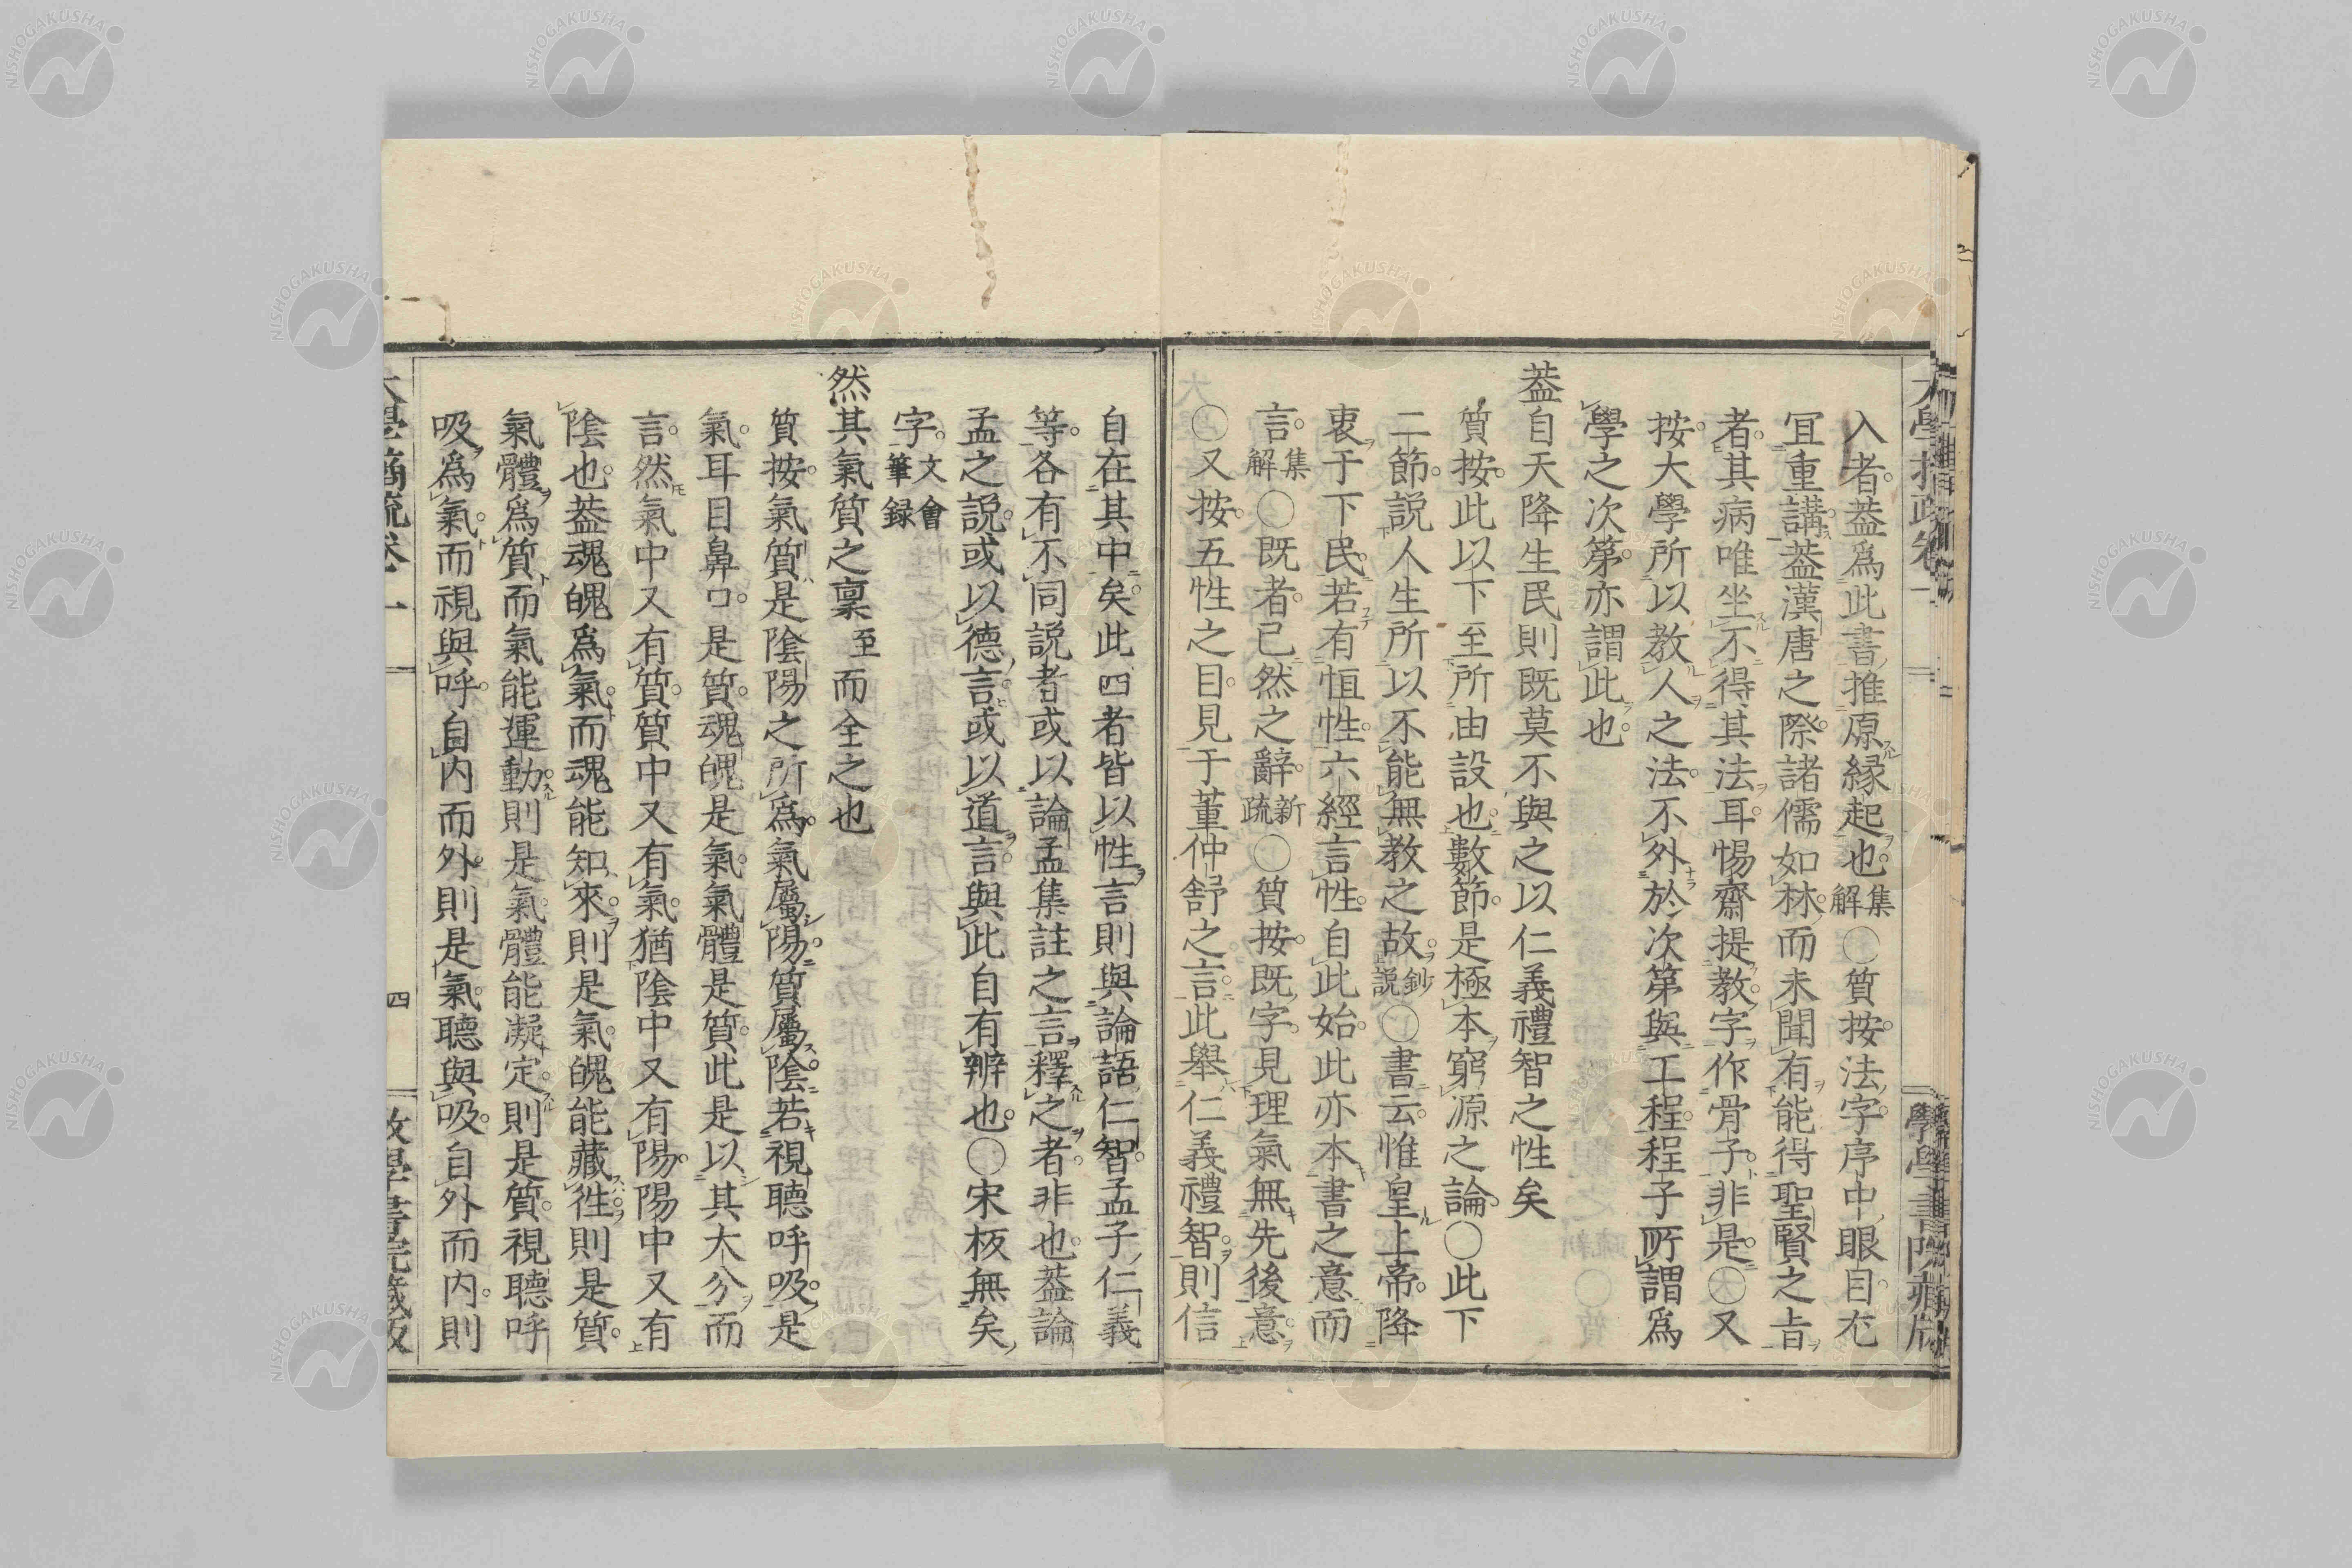 入者葢爲此書推原縁起也集解〇質按法字序中眼目尤
冝重講葢漢唐之際諸儒如林而未聞有能得聖賢之㫖
者其病唯坐不得其法耳惕齋提教字作骨子非是〇又
按大學所以教人之法不外於次第與工程程子所謂爲
學之次第亦謂此也
葢自天降生民則既莫不與之以仁義禮智之性矣
質按此以下至所由設也數節是極本窮源之論〇此下
二節説人生所以不能無教之故鈔説〇書云惟皇上帝降
衷于下民若有恒性六經言性自此始此亦本書之意而
言集解〇既者已然之辭新疏〇質按既字見理氣無先後意
〇又按五性之目見于董仲舒之言此舉仁義禮智則信
自在其中矣此四者皆以性言則與論語仁智孟子仁義
等各有不同説者或以論孟集註之言釋之者非也葢論
孟之説或以德言或以道言與此自有辨也〇宋板無矣
字文會筆録
然其氣質之稟至而全之也
質按氣質是陰陽之所爲氣屬陽質屬陰若視聽呼吸是
氣耳目鼻口是質魂魄是氣氣體是質此是以其大分而
言然氣中又有質質中又有氣猶陰中又有陽陽中又有
陰也葢魂魄爲氣而魂能知來則是氣魄能藏徃則是質
氣體爲質而氣能運動則是氣體能凝定則是質視聽呼
吸爲氣而視與呼自内而外則是氣聽與吸自外而内則
四
NISHOGAKUSHA